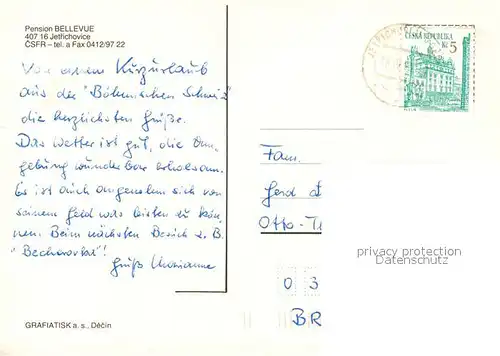 Pension BELLEVUE
407 16 Jetřichovice
ČSFR – tel. a Fax 0412/97 22
Von einem Kurzurlaub
aus der "Böhmischen Schweiz"
die herzlichsten Grüße.
Das Wetter ist gut, die Um-
gebung wunderbar erholsam.
Es ist auch angenehm sich von
seinem Geld was leisten zu kön-
nen. Beim nächsten Besuch z. B.
"Becherovka"!
Gruß Marianne
GRAFIATISK a. s., Děčín
ČESKÁ REPUBLIKA
Kč 5
Fam.
Gerd
Otto-
0 3
BR
privacy protection
Datenschutz